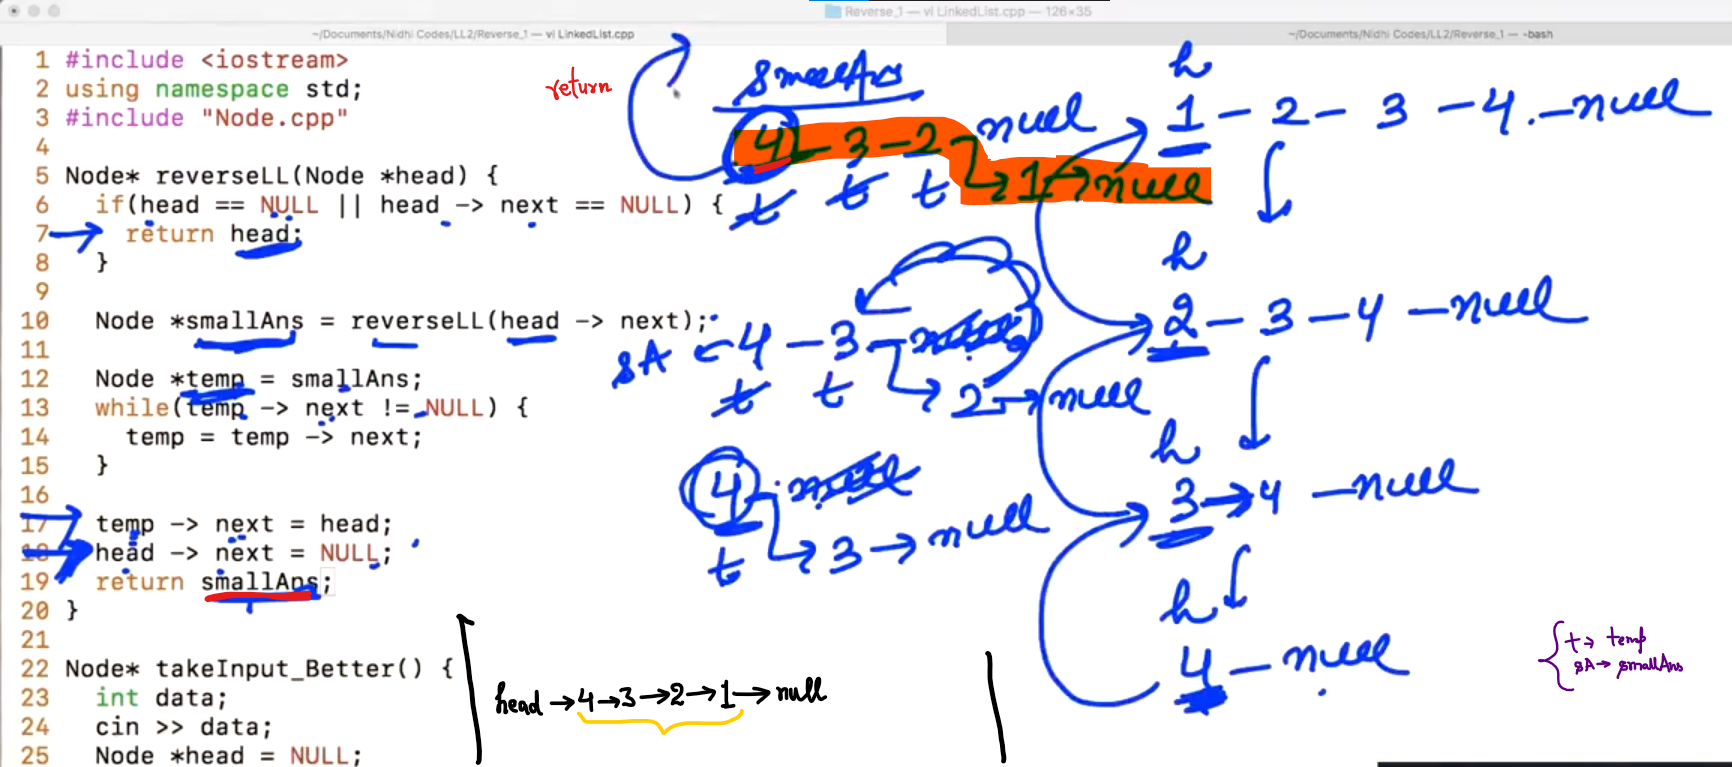 Reverse_1 — vi LinkedList.cpp — 126×35
~/Documents/Nidhi Codes/LL2/Reverse_1 — vi LinkedList.cpp
~/Documents/Nidhi Codes/LL2/Reverse_1 — -bash
1 #include <iostream>
2 using namespace std;
3 #include "Node.cpp"
4
5 Node* reverseLL(Node *head) {
6 if(head == NULL || head -> next == NULL) {
7 return head;
8 }
9
10 Node *smallAns = reverseLL(head -> next);
11
12 Node *temp = smallAns;
13 while(temp -> next != NULL) {
14 temp = temp -> next;
15 }
16
17 temp -> next = head;
18 head -> next = NULL;
19 return smallAns;
20 }
21
22 Node* takeInput_Better() {
23 int data;
24 cin >> data;
25 Node *head = NULL;
return
smallAns
4 - 3 - 2 null
→ 1 → null
t t t
sA ← 4 - 3 - null
→ 2 → null
t t
4 - null
→ 3 → null
t
h
1 - 2 - 3 - 4 - null
h
2 - 3 - 4 - null
h
3 → 4 - null
h
4 - null
head → 4 → 3 → 2 → 1 → null
t → temp
sA → smallAns